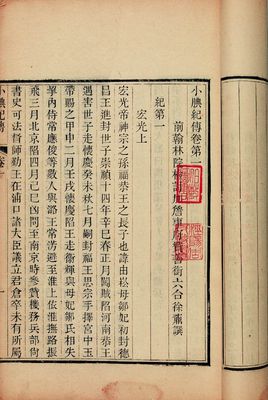 小腆紀傳卷第一
前翰林院檢討詹事府贊善銜六合徐鼒譔
紀第一
宏光上
宏光帝神宗之孫福恭王之長子也諱由崧母鄒妃初封德
昌王進封世子崇禎十四年辛巳春正月闖賊陷河南恭王
遇害世子走懷慶癸未秋七月嗣封福王思宗手擇宮中玉
帶賜之甲申二月壬戌懷慶陷王走衞輝與母妃鄒氏相失
挈內侍常應俊等數人與潞王常淓避至淮上依淮撫路振
飛三月北京陷四月己巳凶問至南京時參贊機務兵部尚
書史可法督師勤王在浦口諸大臣議立君倉卒未有所屬
小腆紀傳 卷一